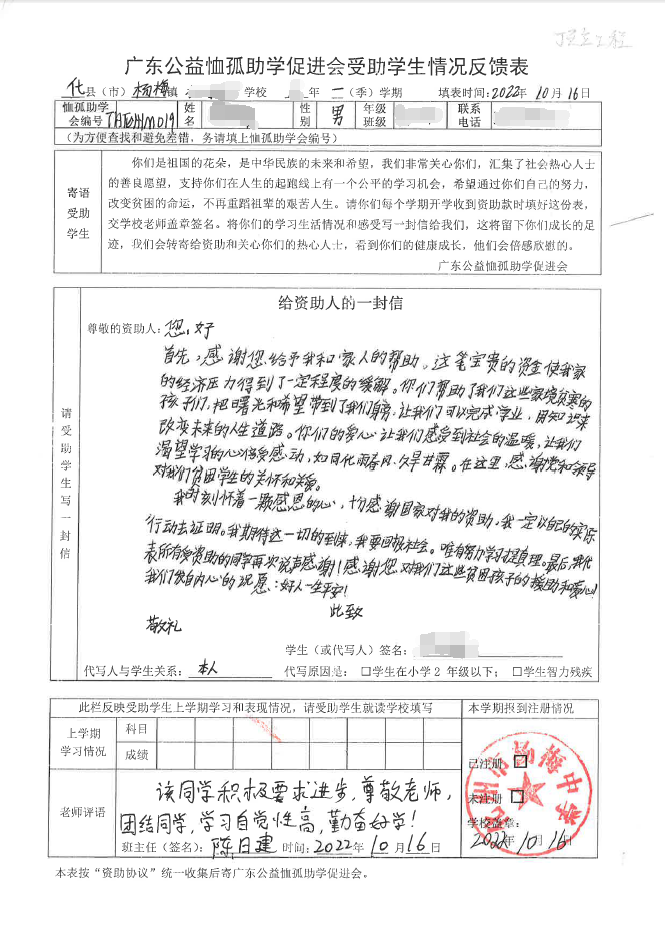 广东公益恤孤助学促进会受助学生情况反馈表
化县（市）杨梅镇 学校 年 二（季）学期 填表时间：2022年10月16日
恤孤助学会编号 THEHHM019 姓名 性别 男 年级班级 联系电话
（为方便查找和避免差错，务请填上恤孤助学会编号）
寄语受助学生
你们是祖国的花朵，是中华民族的未来和希望，我们非常关心你们，汇集了社会热心人士
的善良愿望，支持你们在人生的起跑线上有一个公平的学习机会，希望通过你们自己的努力，
改变贫困的命运，不再重蹈祖辈的艰苦人生。请你们每个学期开学收到资助款时填好这份表，
交学校老师盖章签名。将你们的学习生活情况和感受写一封信给我们，这将留下你们成长的足
迹，我们会转寄给资助和关心你们的热心人士，看到你们的健康成长，他们会倍感欣慰的。
广东公益恤孤助学促进会
请受助学生写一封信
给资助人的一封信
尊敬的资助人：您好
首先，感谢您给予我和家人的帮助。这笔宝贵的资金使我家
的经济压力得到了一定程度的缓解。你们帮助了我们这些家境贫寒的
孩子们，把曙光和希望带到了我们身旁，让我们可以完成学业，用知识来
改变未来的人生道路。你们的爱心让我们感受到社会的温暖，让我们
渴望学习的心倍受感动，如同化雨春风、久旱甘霖。在这里，感谢党和领导
对我们贫困学生的关怀和关爱。
我时刻怀着一颗感恩的心，十切感谢国家对我的资助，我一定以自己的实际
行动去证明。我期待这一切的到来，我要回报社会。唯有努力学习才是真理。最后，我代
表所有受资助的同学再次说声感谢！感谢您对我们这些贫困孩子的援助和爱心！
我们发自内心的祝愿：好人一生平安！
此致
敬礼
学生（或代写人）签名：
代写人与学生关系：本人 代写原因是：□学生在小学2年级以下；□学生智力残疾
此栏反映受助学生上学期学习和表现情况，请受助学生就读学校填写
本学期报到注册情况
上学期学习情况
科目
成绩
已注册 □
未注册 □
学校盖章：
2022年10月16日
老师评语
该同学积极要求进步，尊敬老师，
团结同学，学习自觉性高，勤奋好学！
班主任（签名）：陈日建 时间：2022年10月16日
化州市杨梅中学
本表按“资助协议”统一收集后寄广东公益恤孤助学促进会。